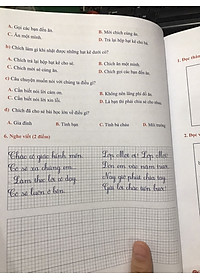 A. Gọi các bạn đến ăn.
B. Mời chích cùng ăn.
C. Ăn một mình.
D. Trả lại hộp hạt kê cho
b) Chích làm gì khi nhặt được những hạt kê dưới cỏ?
A. Chích trả lại hộp hạt kê cho sẻ.
B. Chích ăn một mình.
C. Chích mời sẻ cùng ăn.
D. Chích gọi các bạn đến ăn.
c) Câu chuyện muốn nói với chúng ta điều gì?
A. Cần biết nói lời cảm ơn.
B. Không nên lãng phí đồ ăn.
C. Cần biết nói lời xin lỗi.
D. Là bạn thì phải chia sẻ cho nhau.
d) Chích đã cho sẻ bài học lớn về điều gì?
A. Gia đình
B. Tình bạn
C. Tình bà cháu
D. Môi trường
6. Nghe viết (2 điểm)
Chào cô giáo kính mến
Cô sẽ xa chúng em
Làm theo lời cô dạy
Cô sẽ luôn ở bên.
Lớp Một ơi! Lớp Một!
Đón em vào năm trước
Nay giờ phút chia tay
Gửi lời chào tiến bước!
1. Đọc
2. Đọc